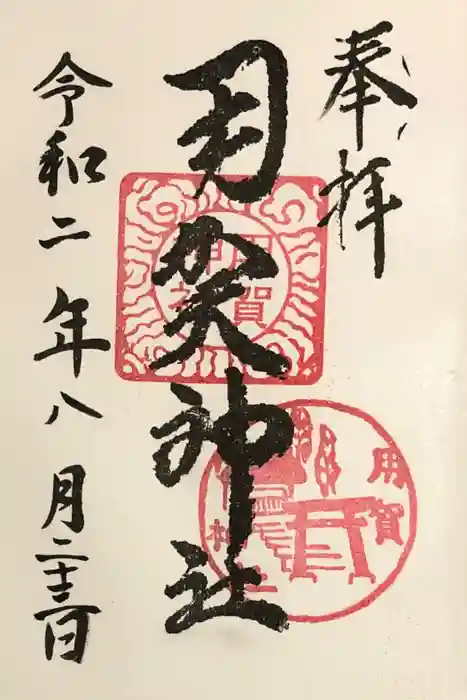 奉拝
用賀神社
令和二年八月二十三日
用賀
神社
用賀
神社